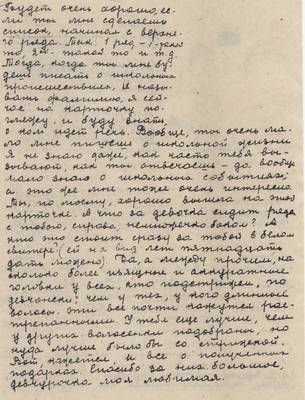 Будет очень хорошо, ес-
ли ты мне сделаешь
список, начиная с верхне-
го ряда. Так: 1 ряд – 1-
то, 2й - такой то и т.д.
Тогда, когда ты мне бу-
дешь писать о школьном
происшествии, и назы-
вать фамилию, я сей-
час на карточку по-
гляжу, и буду знать,
о ком идет речь. Вообще, ты очень ма-
ло мне пишешь о школьной жизни.
Я не знаю даже, как часто тебя вы-
зывают, как ты отвечаешь - да вообще
мало знаю о школьных событиях;
а это же мне тоже очень интересно.
Ты, по моему, хорошо вышла на этой
карточке. А что за девочка сидит рядом
с тобою, справа, немножечко боком? А
кто это стоит сразу за тобой в белом
свитере? (ей на вид лет пятнадцать
дать можно). Да, а между прочим, на-
сколько более изящные и аккуратные
головки у всех, кто подстрижен, по
сравнению чем у тех, у кого длинные
волосы. Эти все почти кажутся рас-
трепанными. У тебя еще лучше, чем
у других волосенки подобраны, но
куда лучше было бы со стрижкой.
Вот, кажется, и все о полученных
подарках. Спасибо за них большое,
девчурочка моя любимая.